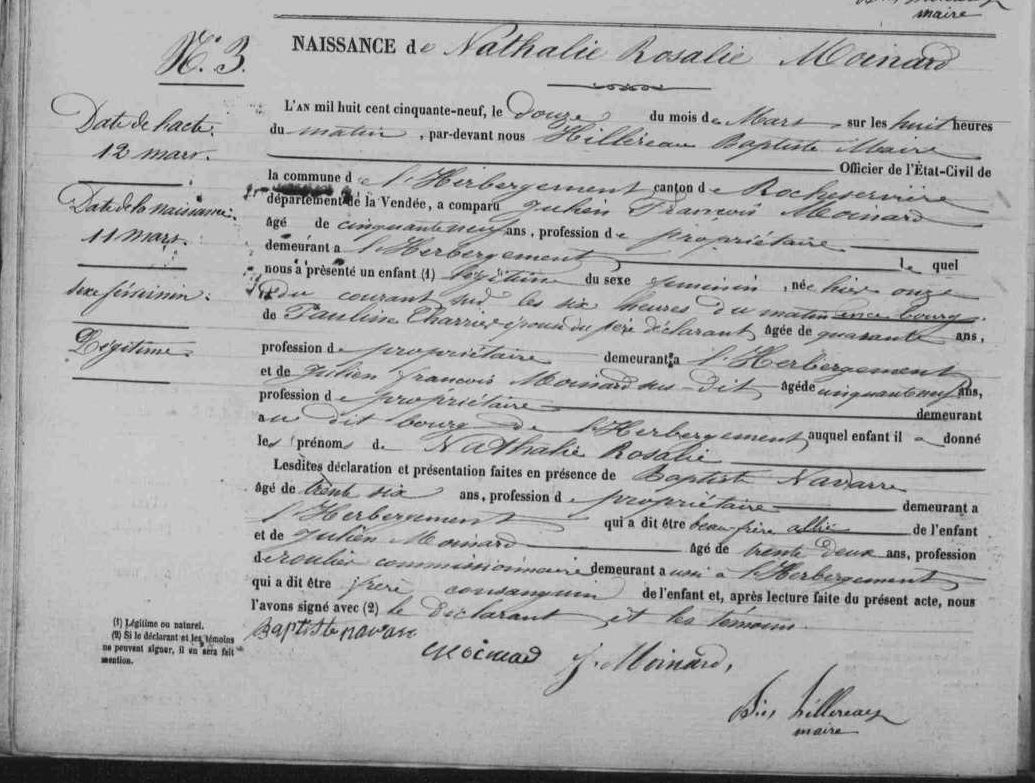 maire
N°. 3.
NAISSANCE de Nathalie Rosalie Moinard
Date de l'acte.
12 mars.
Date de la naissance.
11 Mars.
sexe féminin.
Légitime.
L'AN mil huit cent cinquante-neuf, le Douze du mois de Mars, sur les huit heures
du matin, par-devant nous Hillereau Baptiste Maire
Officier de l'État-Civil de
la commune de l'Herbergement canton de Rocheservière
département de la Vendée, a comparu Julien François Moinard
âgé de cinquante neuf ans, profession de propriétaire
demeurant a l'Herbergement le quel
nous a présenté un enfant (1) légitime du sexe féminin, née hier onze
du courant sur les six heures du matin en ce bourg.
de Pauline Charrier épouse du père déclarant âgée de quarante ans,
profession de propriétaire demeurant a l'Herbergement
et de Julien françois Moinard sus dit âgé de cinquante neuf ans,
profession de propriétaire demeurant
au dit bourg de l'Herbergement auquel enfant il a donné
les prénoms de Nathalie Rosalie
Lesdites déclaration et présentation faites en présence de Baptiste Navarre
âgé de trente six ans, profession de propriétaire demeurant a
l'Herbergement qui a dit être beau frère allié de l'enfant
et de Julien Moinard âgé de trente deux ans, profession
de roulier commissionnaire demeurant aussi à l'Herbergement
qui a dit être frère consanguin de l'enfant et, après lecture faite du présent acte, nous
l'avons signé avec (2) le déclarant et les témoins.
(1) Légitime ou naturel.
(2) Si le déclarant et les témoins
ne peuvent signer, il en sera fait
mention.
Baptiste navare
Moinard J. Moinard,
hillereau
maire